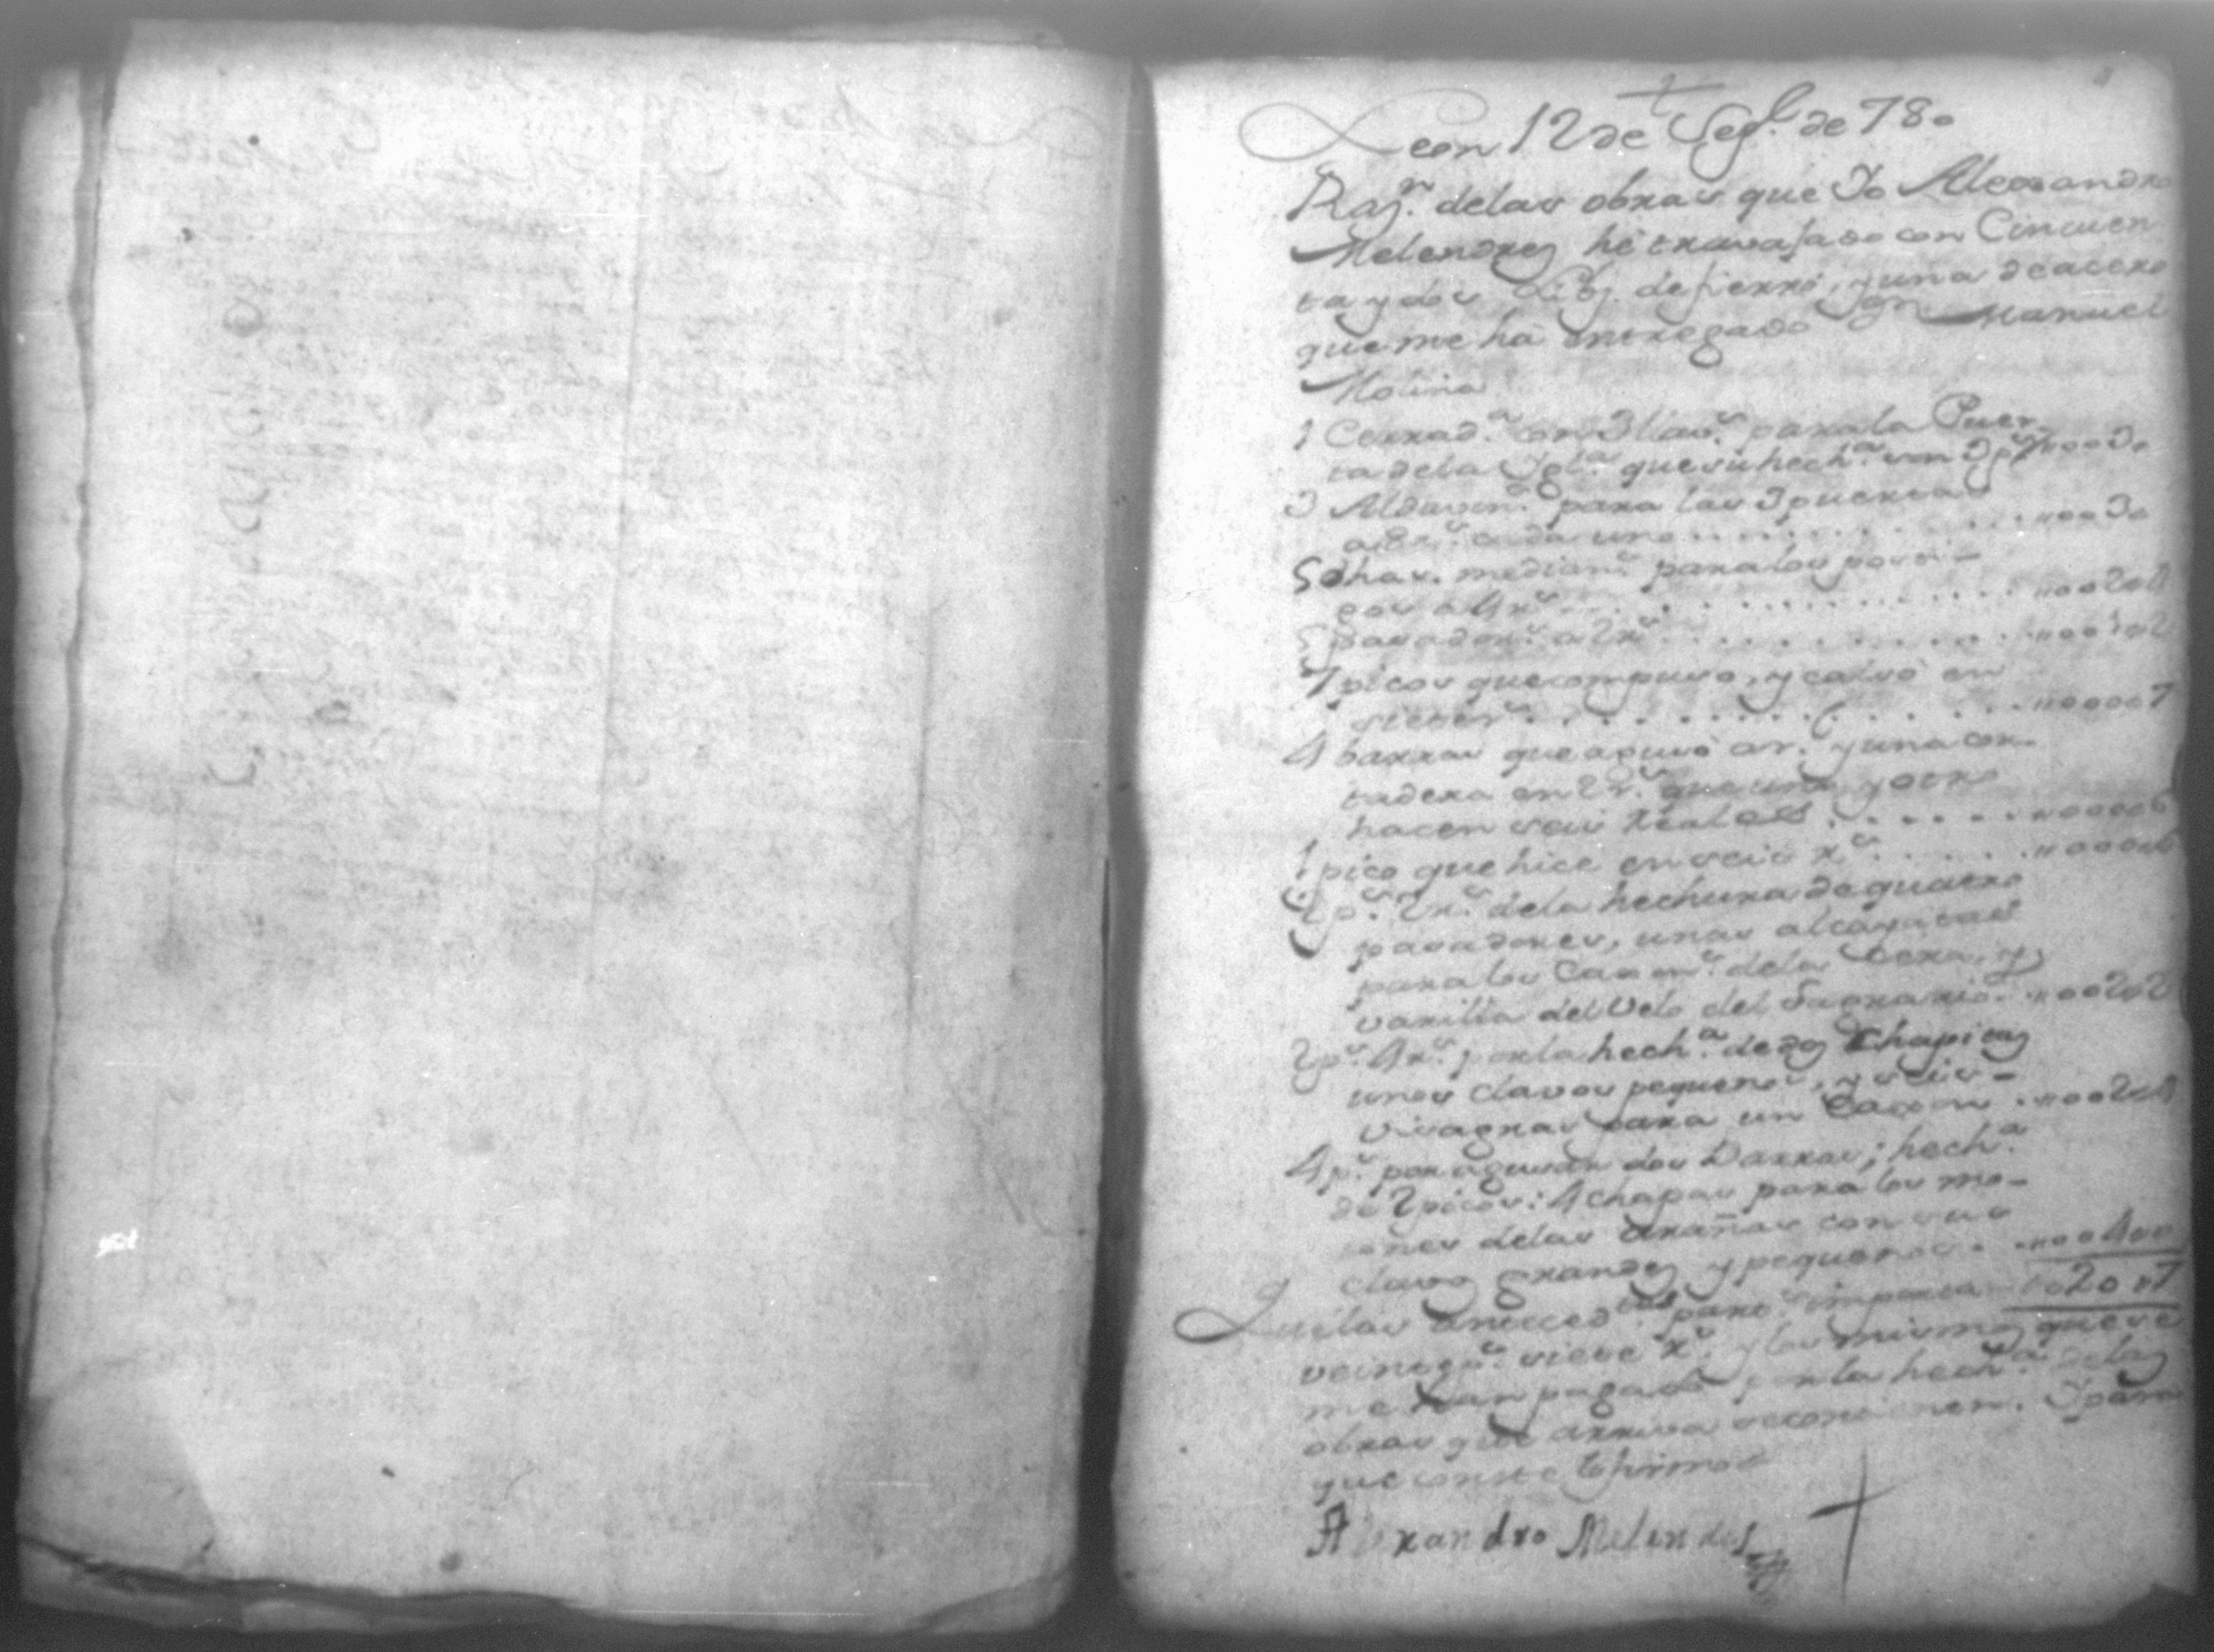 Leon 12 de Sep.e de 780
Raz.n delas obras que Yo Alexandro
Melendres hè travajado con Cincuen
ta y dos Lib.s de fierro, y una de acero
que me há entregado Dn. Manuel
Molina
1 Cerrad.a con 3 llav.s para la Puer-
ta dela Igl.a que su hech.a son 3 p.s 003o
3 Aldavon.s para las 3 puertas
a 8 r.s cada uno 003o
5 chav. median.s para los posti-
gos a 4 r.s 002o4
5 pasador.s a 2 r.s 001o2
7 picos que compuso, y calsó en
siete r.s 000o7
4 barras que agusó a r.l y una cor-
tadera en 2 r.s que uno, y otro
hacen seis reales 000o6
1 pico que hice en seis r.s 000o6
2 p.s 2 r.s dela hechura de quatro
pasadores, unas alcayatas
para los Caxon.s dela Cera, y
varilla del Velo del Sagrario 002o2
2 p.s 4 r.s por la hech.a de dos Chapitas
unos clavos pequenos, y seis
visagras para un Caxon 002o4
4 p.s por agusar dos Barras; hech.a
de 2 picos: 4 chapas para los mo-
nes delas arañas con sus
clavos grandes y pequenos 004oo
Quélas anteced.tes part.s importa 020o7
veinte p.s siete r.s y los mismos que se
me han pagado por la hech.a delas
obras que arriva se contienen. Y para
que conste lo firmo
Alexandro Melendes